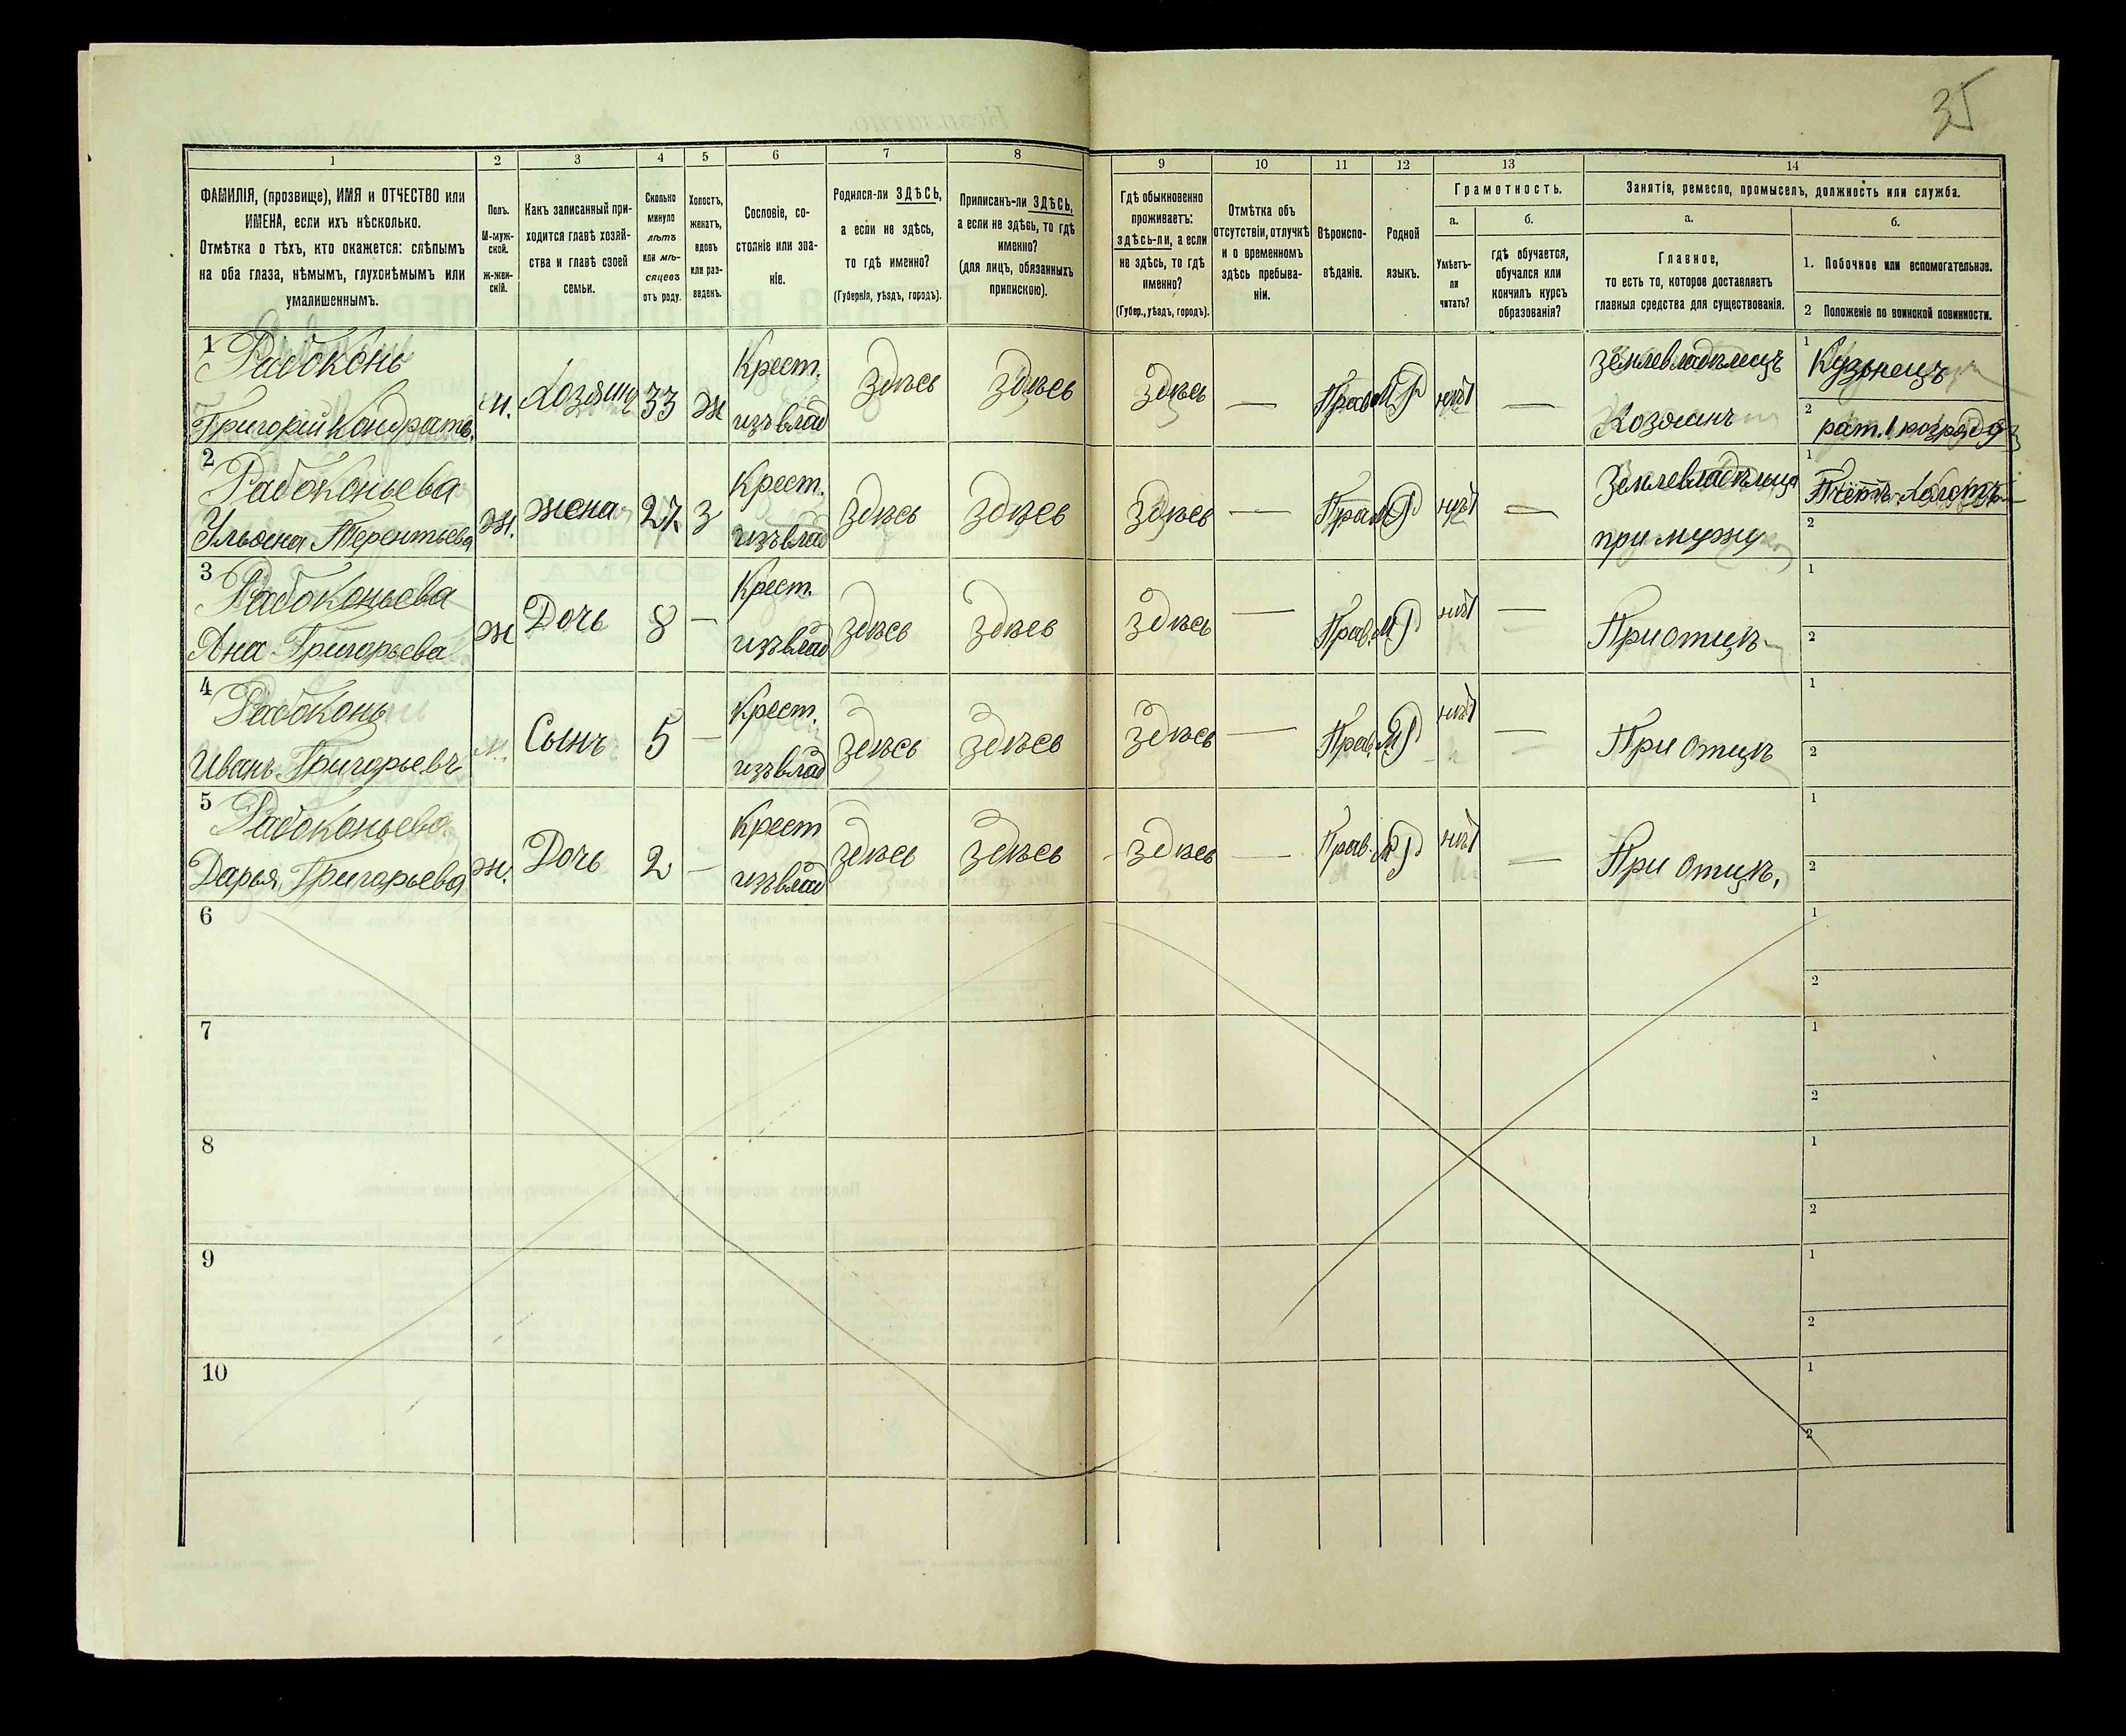 35
1 2 3 4 5 6 7 8 9 10 11 12 13 14
ФАМИЛІЯ, (прозвище), ИМЯ и ОТЧЕСТВО или
ИМЕНА, если ихъ нѣсколько.
Отмѣтка о тѣхъ, кто окажется: слѣпымъ
на оба глаза, нѣмымъ, глухонѣмымъ или
умалишеннымъ.
Полъ.
М-муж-
ской.
ж-жен-
скій.
Какъ записанный при-
ходится главѣ хозяй-
ства и главѣ своей
семьи.
Сколько
минуло
лѣтъ
или мѣ-
сяцевъ
отъ роду.
Холостъ,
женатъ,
вдовъ
или раз-
веденъ.
Сословіе, со-
стояніе или зва-
ніе.
Родился-ли ЗДѢСЬ,
а если не здѣсь,
то гдѣ именно?
(Губернія, уѣздъ, городъ).
Приписанъ-ли ЗДѢСЬ,
а если не здѣсь, то гдѣ
именно?
(для лицъ, обязанныхъ
припискою).
Гдѣ обыкновенно
проживаетъ:
здѣсь-ли, а если
не здѣсь, то гдѣ
именно?
(Губер., уѣздъ, городъ).
Отмѣтка объ
отсутствіи, отлучкѣ
и о временномъ
здѣсь пребыва-
ніи.
Вѣроиспо-
вѣданіе.
Родной
языкъ.
Грамотность.
а.
Умѣетъ-
ли
читать?
б.
гдѣ обучается,
обучался или
кончилъ курсъ
образованія?
Занятія, ремесло, промыселъ, должность или служба.
а.
Главное,
то есть то, которое доставляетъ
главныя средства для существованія.
б.
1. Побочное или вспомогательное.
2 Положеніе по воинской повинности.
1 Рабоконь
Григорій Кондратьев.
м. Хозяинъ 33 ж Крест.
изъ влад
Здѣсь Здѣсь Здѣсь — Прав М.Р. нѣт —
землевладѣлецъ
Хозяинъ
1 Кузнецъ
2 рат. 1 розряда
2 Рабоконьева
Ульяна Терентьева
ж. жена 27 з Крест.
изъ влад
Здѣсь Здѣсь Здѣсь — Прав М.Р. нѣт —
Землевладѣлица
при мужу
1
2
3 Рабоконьева
Ана Григорьева
ж Дочь 8 — Крест.
изъ влад
Здѣсь Здѣсь Здѣсь — Прав. М.Р. нѣт —
При отцѣ
1
2
4 Рабоконь
Иванъ Григорьевъ
м. Сынъ 5 — Крест.
изъ влад
Здѣсь Здѣсь Здѣсь — Прав. М.Р. нѣт —
При отцѣ
1
2
5 Рабоконьева
Дарья Григорьева
ж. Дочь 2 — Крест
изъ влад
Здѣсь Здѣсь Здѣсь — Прав. М.Р. нѣт —
При отцѣ,
1
2
6
1
2
7
1
2
8
1
2
9
1
2
10
1
2